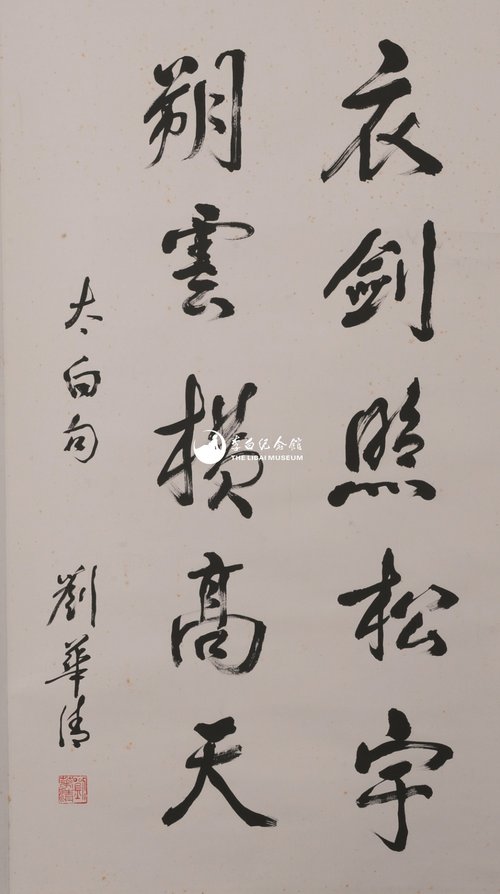 衣劍照松宇
朔雲横高天
太白句
劉華清
李白纪念馆
THE LIBAI MUSEUM